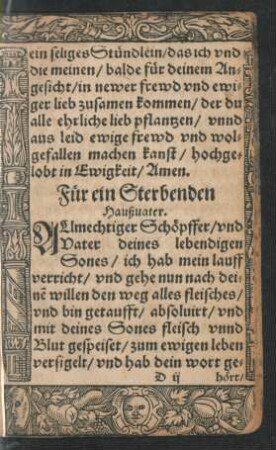 ein seliges Stündlein/das ich vnd
die meinen/ balde für deinem An-
gesicht/in newer frewd vnd ewi-
ger lieb zusamen kommen/ der du
alle ehrliche lieb pflantzen/ vnnd
aus leid ewige frewd vnd wol-
gefallen machen kanst/ hochge-
lobt in Ewigkeit/ Amen.
Für ein Sterbenden
Haußuater.
ALlmechtiger Schöpffer/vnd
Vater deines lebendigen
Sones/ ich hab mein lauff
verricht/ vnd gehe nun nach dei-
nē willen den weg alles fleisches/
vnd bin getaufft/ absoluirt/ vnd
mit deines Sones fleisch vnnd
Blut gespeiset/ zum ewigen leben
versigelt/ vnd hab dein wort ge-
D ij hört/